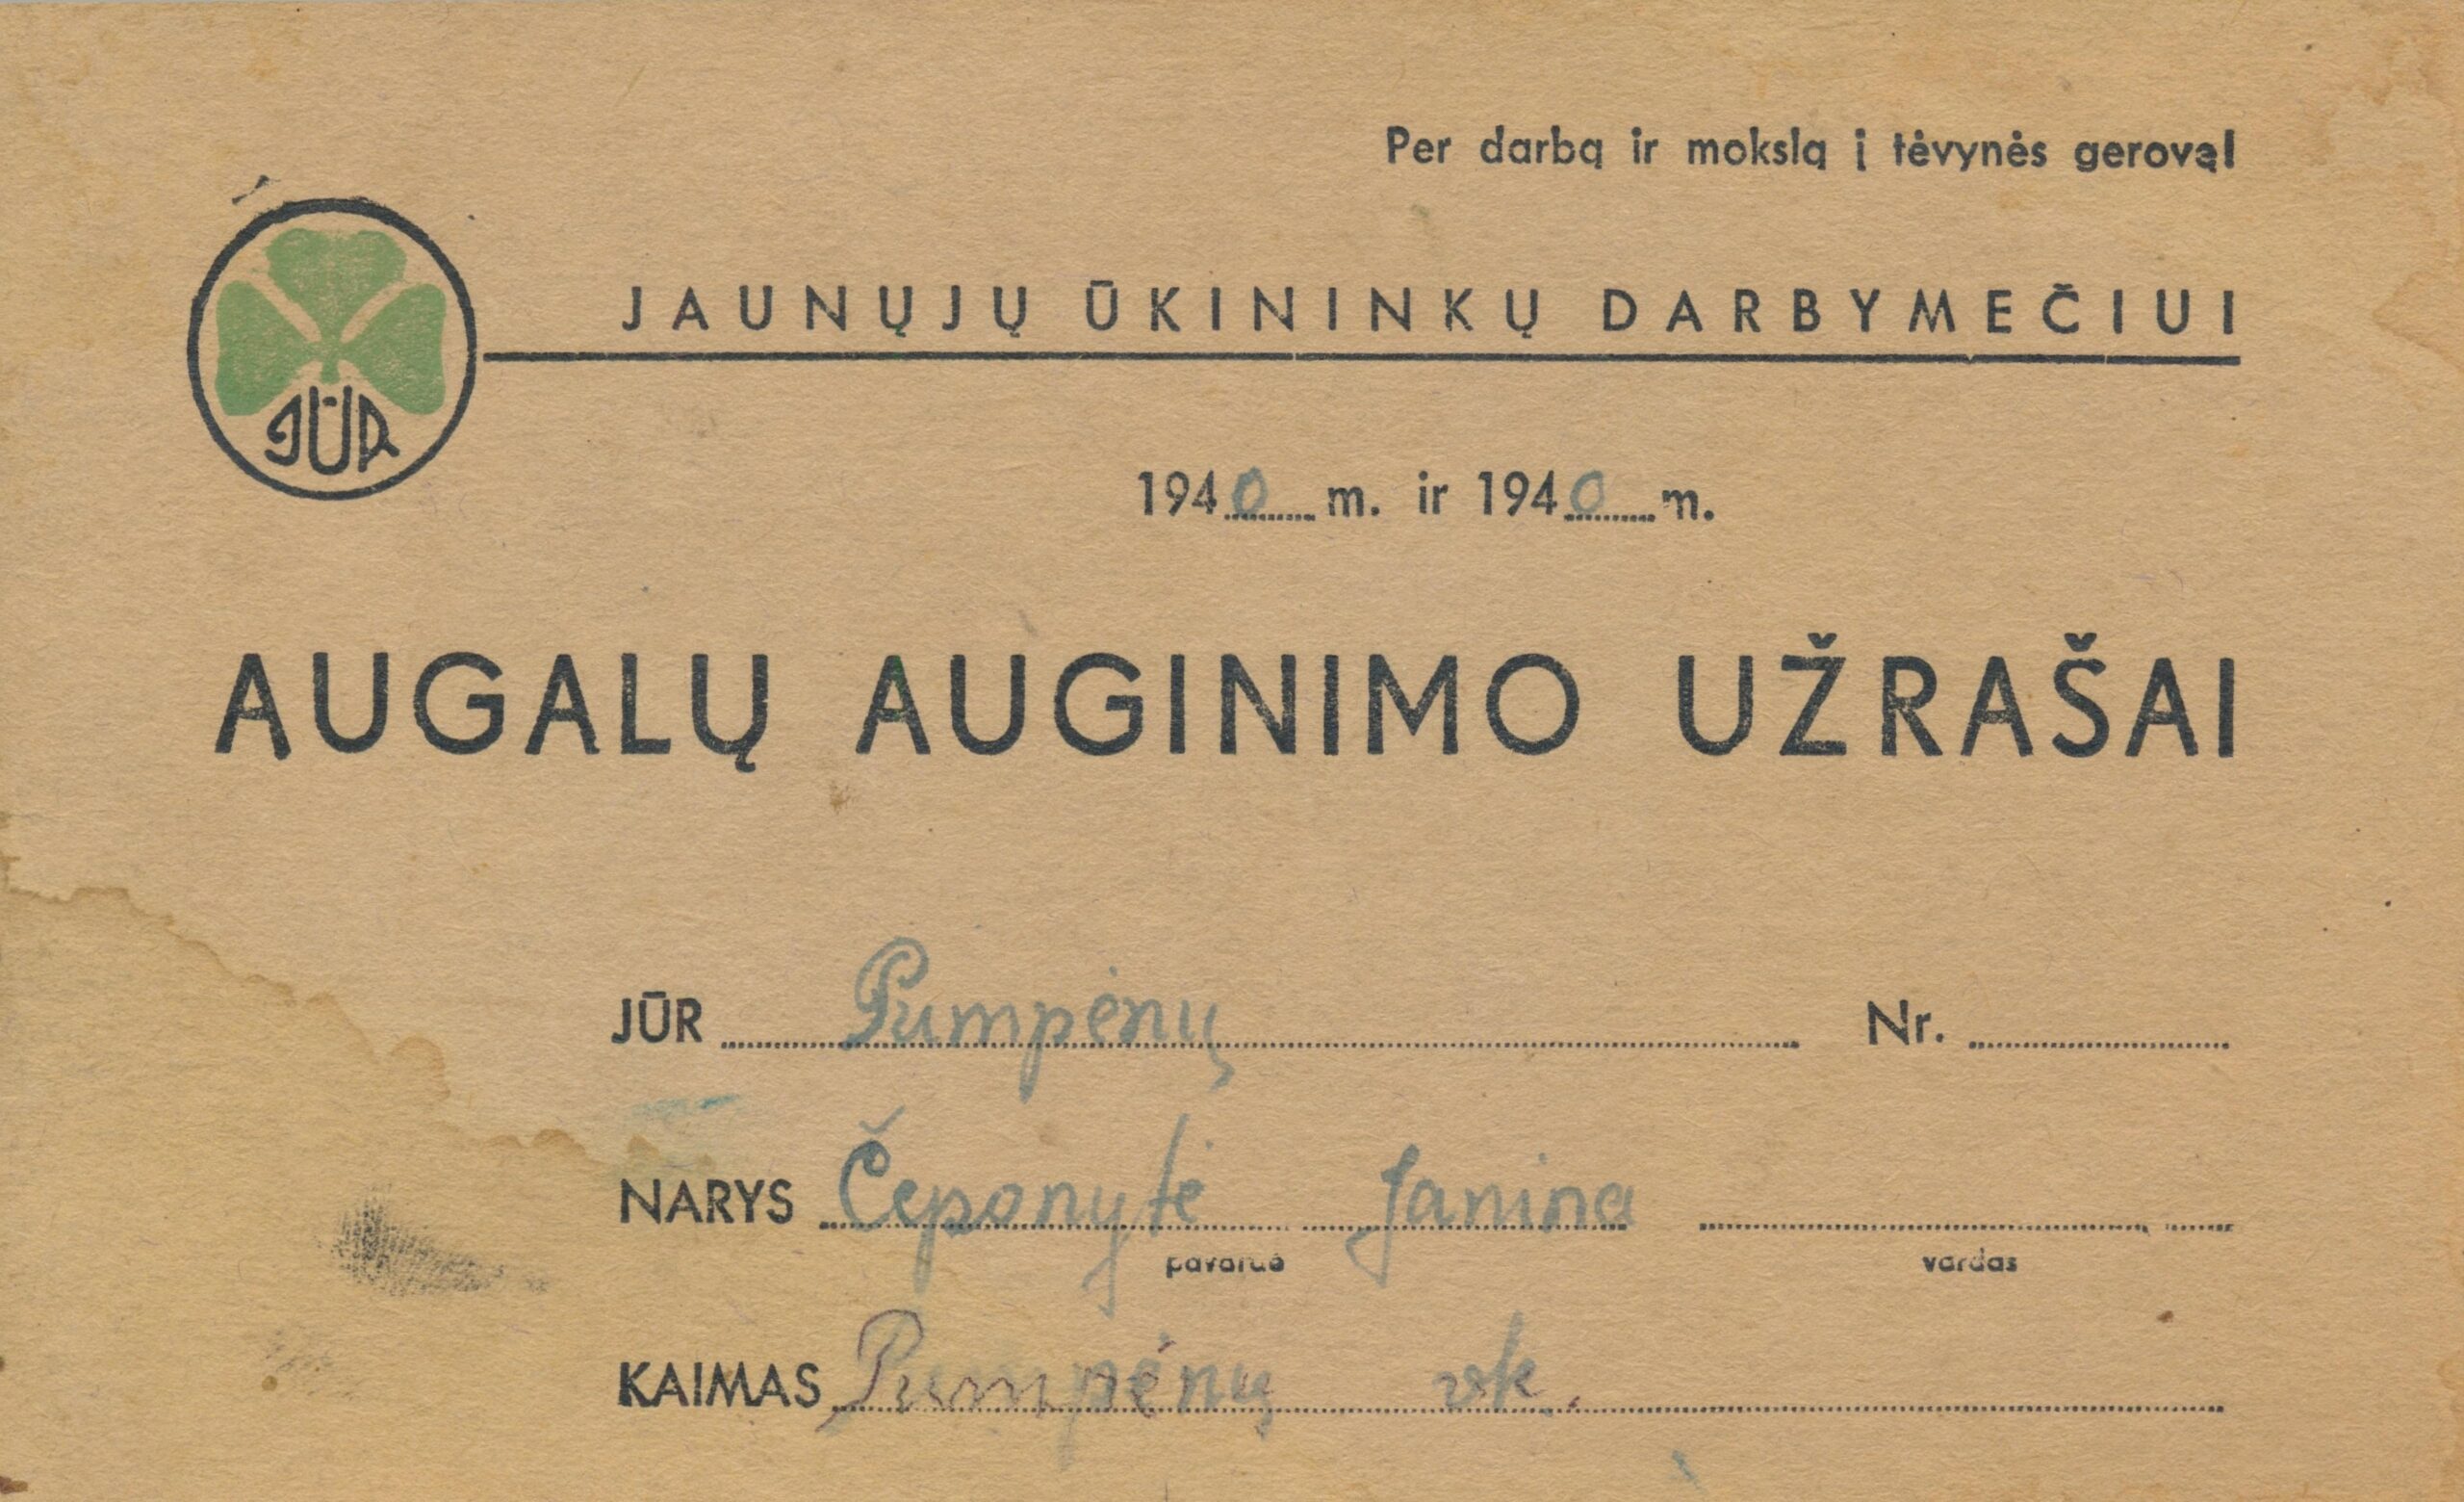 Per darbą ir mokslą į tėvynės gerovę!
JAUNŲJŲ ŪKININKŲ DARBYMEČIUI
JŪR
1940 m. ir 1940 m.
AUGALŲ AUGINIMO UŽRAŠAI
JŪR Pumpėnų Nr.
NARYS Čeponytė Janina
pavardė vardas
KAIMAS Pumpėnų vk.